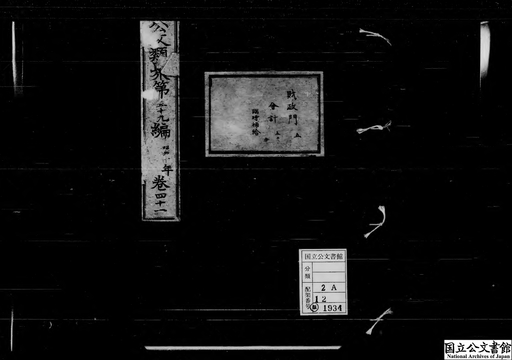 公文類聚第五十九編
昭和十年
巻四十一
財政門 五
会計 五ノ十
臨時補給
国立公文書館
分類
配架番号
2A
12
1934
国立公文書館
National Archives of Japan